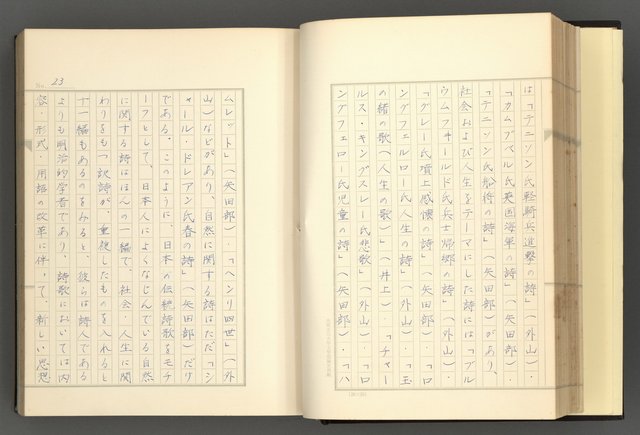 は「テニソン氏軽騎兵進撃の詩」（外山）・
「カムプベル氏英国海軍の詩」（矢田部）・
「テニソン氏船将の詩」（矢田部）があり、
社会および人生をテーマにした詩には「ブル
ウムフォールド氏兵士帰郷の詩」（外山）・
「グレー氏墳上感懐の詩」（矢田部）・「ロ
ングフェルロー氏人生の詩」（外山）・「玉
の緒の歌（人生の歌）」（井上）・「チャー
ルス・キングスレー氏悲歌」（外山）・「ロ
ングフェロー氏児童の詩」（矢田部）・「ハ
No. 23
ムレット」（矢田部）・「ヘンリ四世」（外
山）などがあり、自然に関する詩はただ「シ
ャール・ドレアン氏春の詩」（矢田部）だけ
である。このように、日本の伝統詩歌をモチ
ーフとして、日本人によくなじんでいる自然
に関する詩はほんの一編で、社会・人生に関
わりをもつ訳詩が、重複したものを入れると
十一編もあるのをみると、彼らは詩人である
よりも明治的学者であり、詩歌においては内
容・形式・用語の改革に伴って、新しい思想